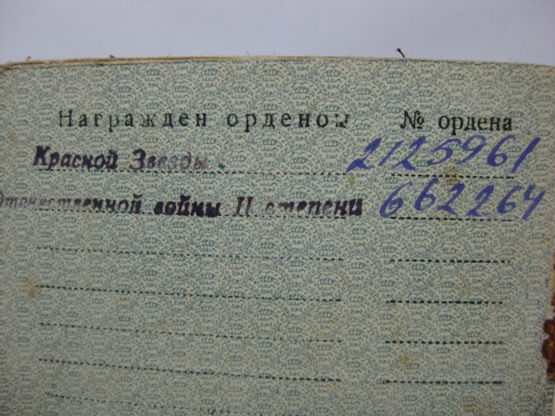 Награжден орденом № ордена
Красной Звезды 2125961
Отечественной войны II степени 662264